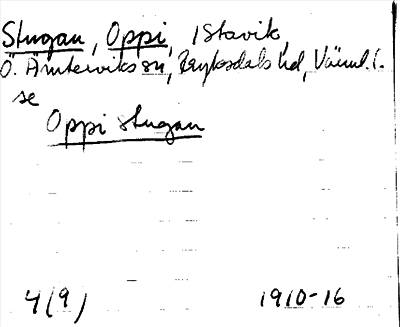 Stugan, Oppi, /Stavik,
Ö. Ämterviks sn, Fryksdals hd, Värml. l.
se
Oppi stugan
4(9) 1910-16